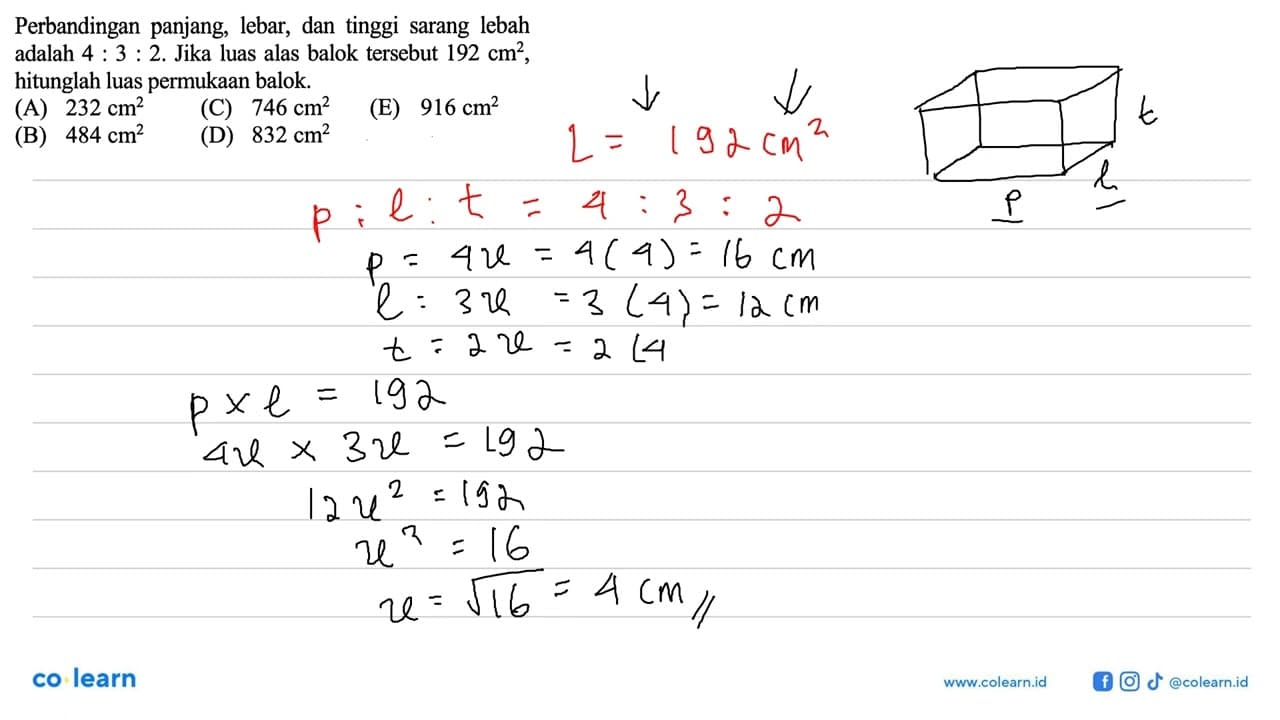 Perbandingan panjang, lebar, dan tinggi sarang lebah
adalah 4 : 3 : 2. Jika luas alas balok tersebut 192 cm²,
hitunglah luas permukaan balok.
(A) 232 cm² (C) 746 cm² (E) 916 cm²
(B) 484 cm² (D) 832 cm²
L = 192 cm²
t
l
p
p : l : t = 4 : 3 : 2
p = 4x = 4(4) = 16 cm
l = 3x = 3(4) = 12 cm
t = 2x = 2(4
p x l = 192
4x x 3x = 192
12x² = 192
x² = 16
x = √16 = 4 cm //
co learn
www.colearn.id
@colearn.id